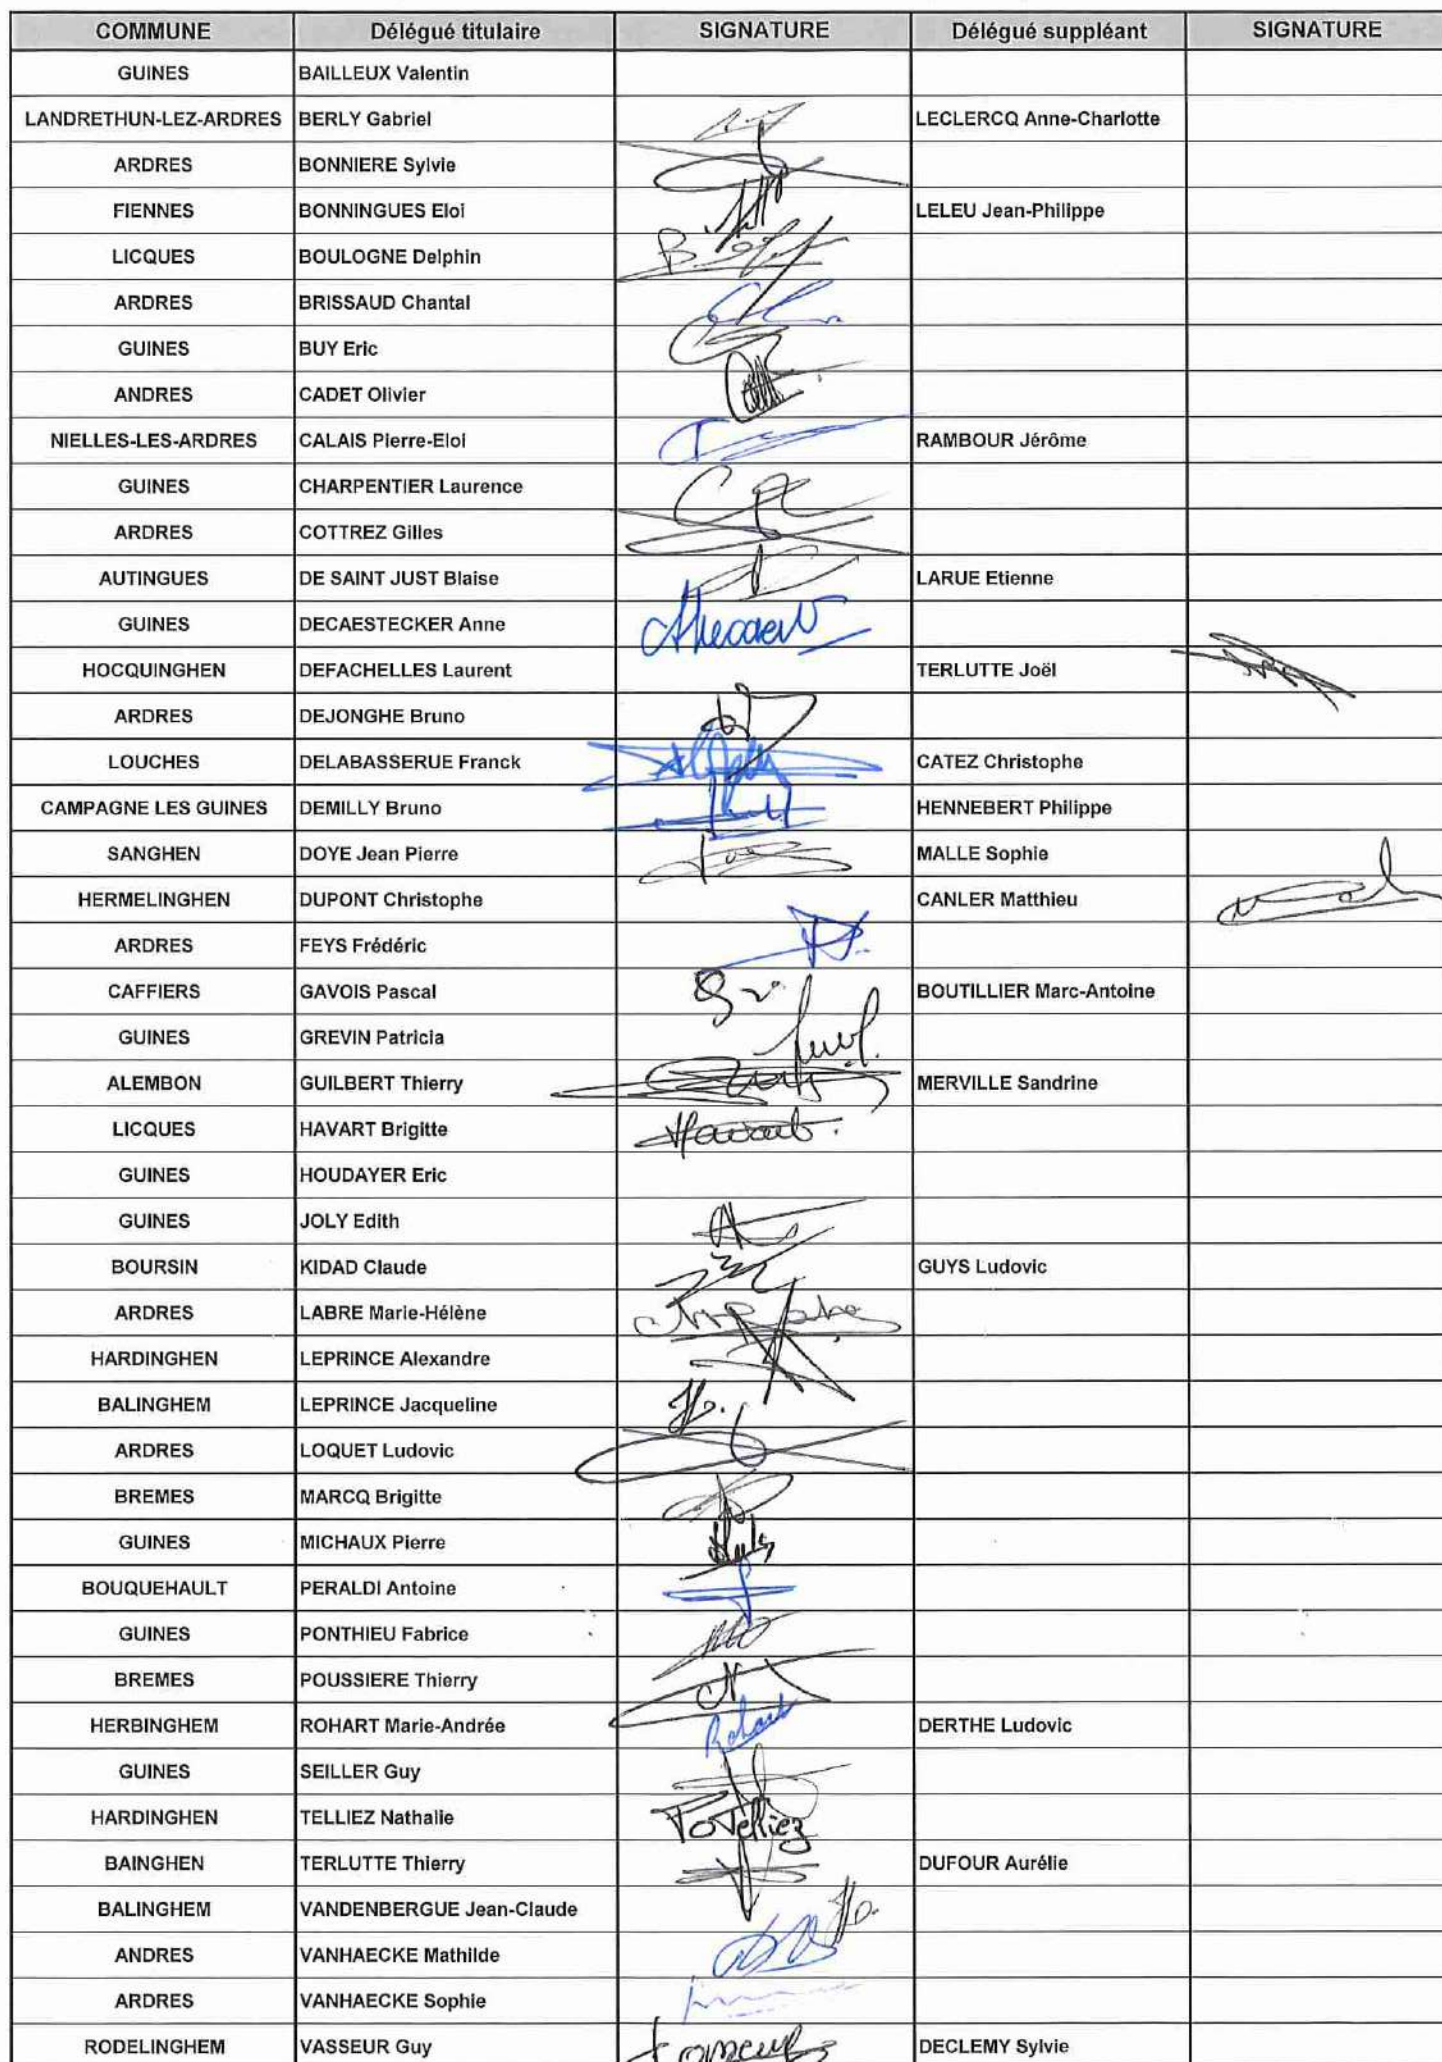 COMMUNE Délégué titulaire SIGNATURE Délégué suppléant SIGNATURE
GUINES BAILLEUX Valentin
LANDRETHUN-LEZ-ARDRES BERLY Gabriel LECLERCQ Anne-Charlotte
ARDRES BONNIERE Sylvie
FIENNES BONNINGUES Eloi LELEU Jean-Philippe
LICQUES BOULOGNE Delphin
ARDRES BRISSAUD Chantal
GUINES BUY Eric
ANDRES CADET Olivier
NIELLES-LES-ARDRES CALAIS Pierre-Eloi RAMBOUR Jérôme
GUINES CHARPENTIER Laurence
ARDRES COTTREZ Gilles
AUTINGUES DE SAINT JUST Blaise LARUE Etienne
GUINES DECAESTECKER Anne
HOCQUINGHEN DEFACHELLES Laurent TERLUTTE Joël
ARDRES DEJONGHE Bruno
LOUCHES DELABASSERUE Franck CATEZ Christophe
CAMPAGNE LES GUINES DEMILLY Bruno HENNEBERT Philippe
SANGHEN DOYE Jean Pierre MALLE Sophie
HERMELINGHEN DUPONT Christophe CANLER Matthieu
ARDRES FEYS Frédéric
CAFFIERS GAVOIS Pascal BOUTILLIER Marc-Antoine
GUINES GREVIN Patricia
ALEMBON GUILBERT Thierry MERVILLE Sandrine
LICQUES HAVART Brigitte Havart
GUINES HOUDAYER Eric
GUINES JOLY Edith
BOURSIN KIDAD Claude GUYS Ludovic
ARDRES LABRE Marie-Hélène
HARDINGHEN LEPRINCE Alexandre
BALINGHEM LEPRINCE Jacqueline
ARDRES LOQUET Ludovic
BREMES MARCQ Brigitte
GUINES MICHAUX Pierre
BOUQUEHAULT PERALDI Antoine
GUINES PONTHIEU Fabrice
BREMES POUSSIERE Thierry
HERBINGHEM ROHART Marie-Andrée Rohart DERTHE Ludovic
GUINES SEILLER Guy
HARDINGHEN TELLIEZ Nathalie Telliez
BAINGHEN TERLUTTE Thierry DUFOUR Aurélie
BALINGHEM VANDENBERGUE Jean-Claude
ANDRES VANHAECKE Mathilde
ARDRES VANHAECKE Sophie
RODELINGHEM VASSEUR Guy DECLEMY Sylvie